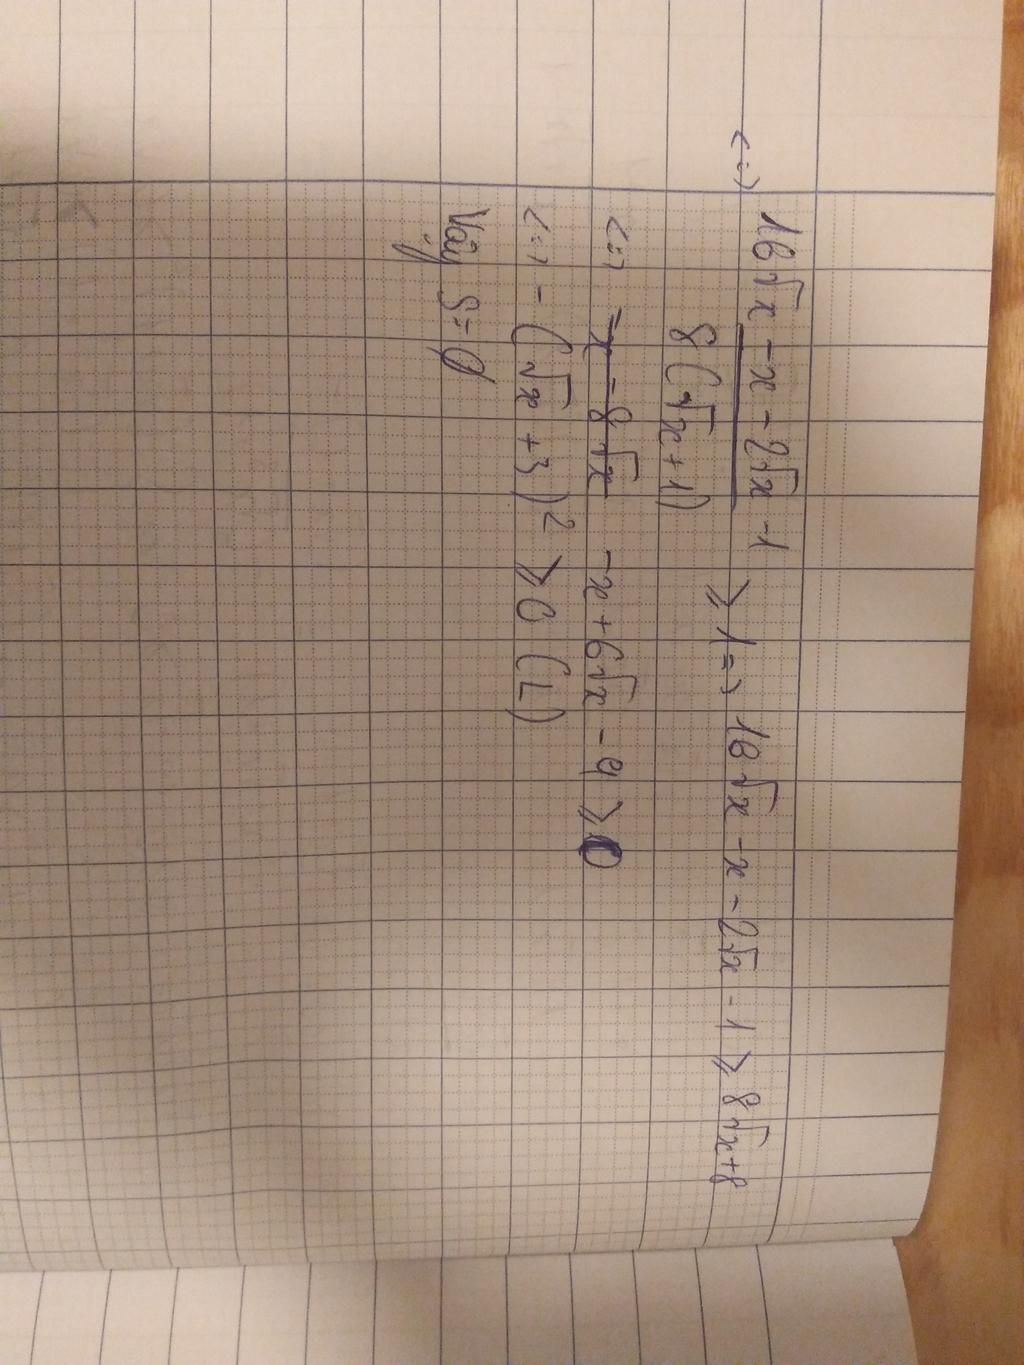 <=> 16√x - x - 2√x - 1 / 8(√x + 1) ≥ 1 => 16√x - x - 2√x - 1 ≥ 8√x + 8
<=> -x - 8√x -x + 6√x - 9 ≥ 0
<=> - (√x + 3)² ≥ 0 (L)
Vậy S = ∅